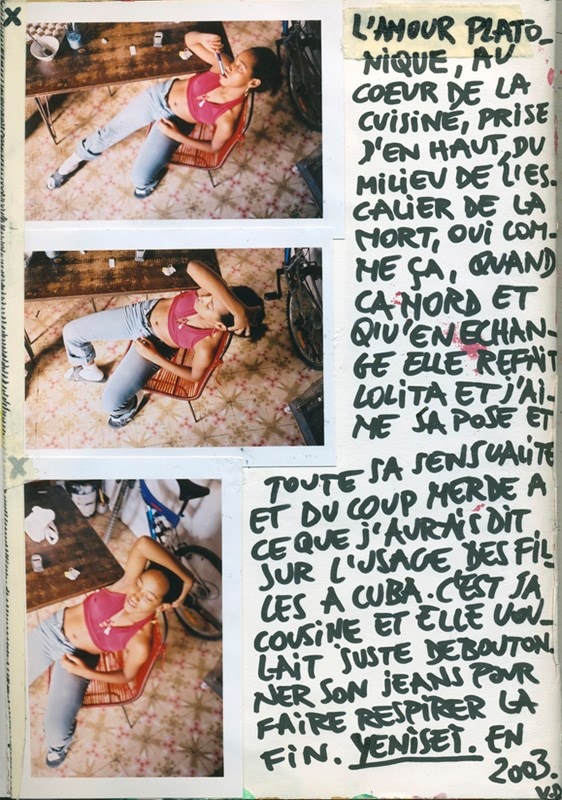 L'AMOUR PLATO-
NIQUE, AU
COEUR DE LA
CUISINE, PRISE
D'EN HAUT, DU
MILIEU DE L'ES-
CALIER DE LA
MORT, OUI COM-
ME ÇA, QUAND
ÇA MORD ET
QU'EN ECHAN-
GE ELLE REFAIT
LOLITA ET J'AI-
ME SA POSE ET
TOUTE SA SENSUALITE
ET DU COUP MERDE A
CE QUE J'AURAIS DIT
SUR L'USAGE DES FIL-
LES A CUBA. C'EST SA
COUSINE ET ELLE VOU-
LAIT JUSTE DEBOUTON
NER SON JEANS POUR
FAIRE RESPIRER LA
FIN. YENISEI. EN
2003.